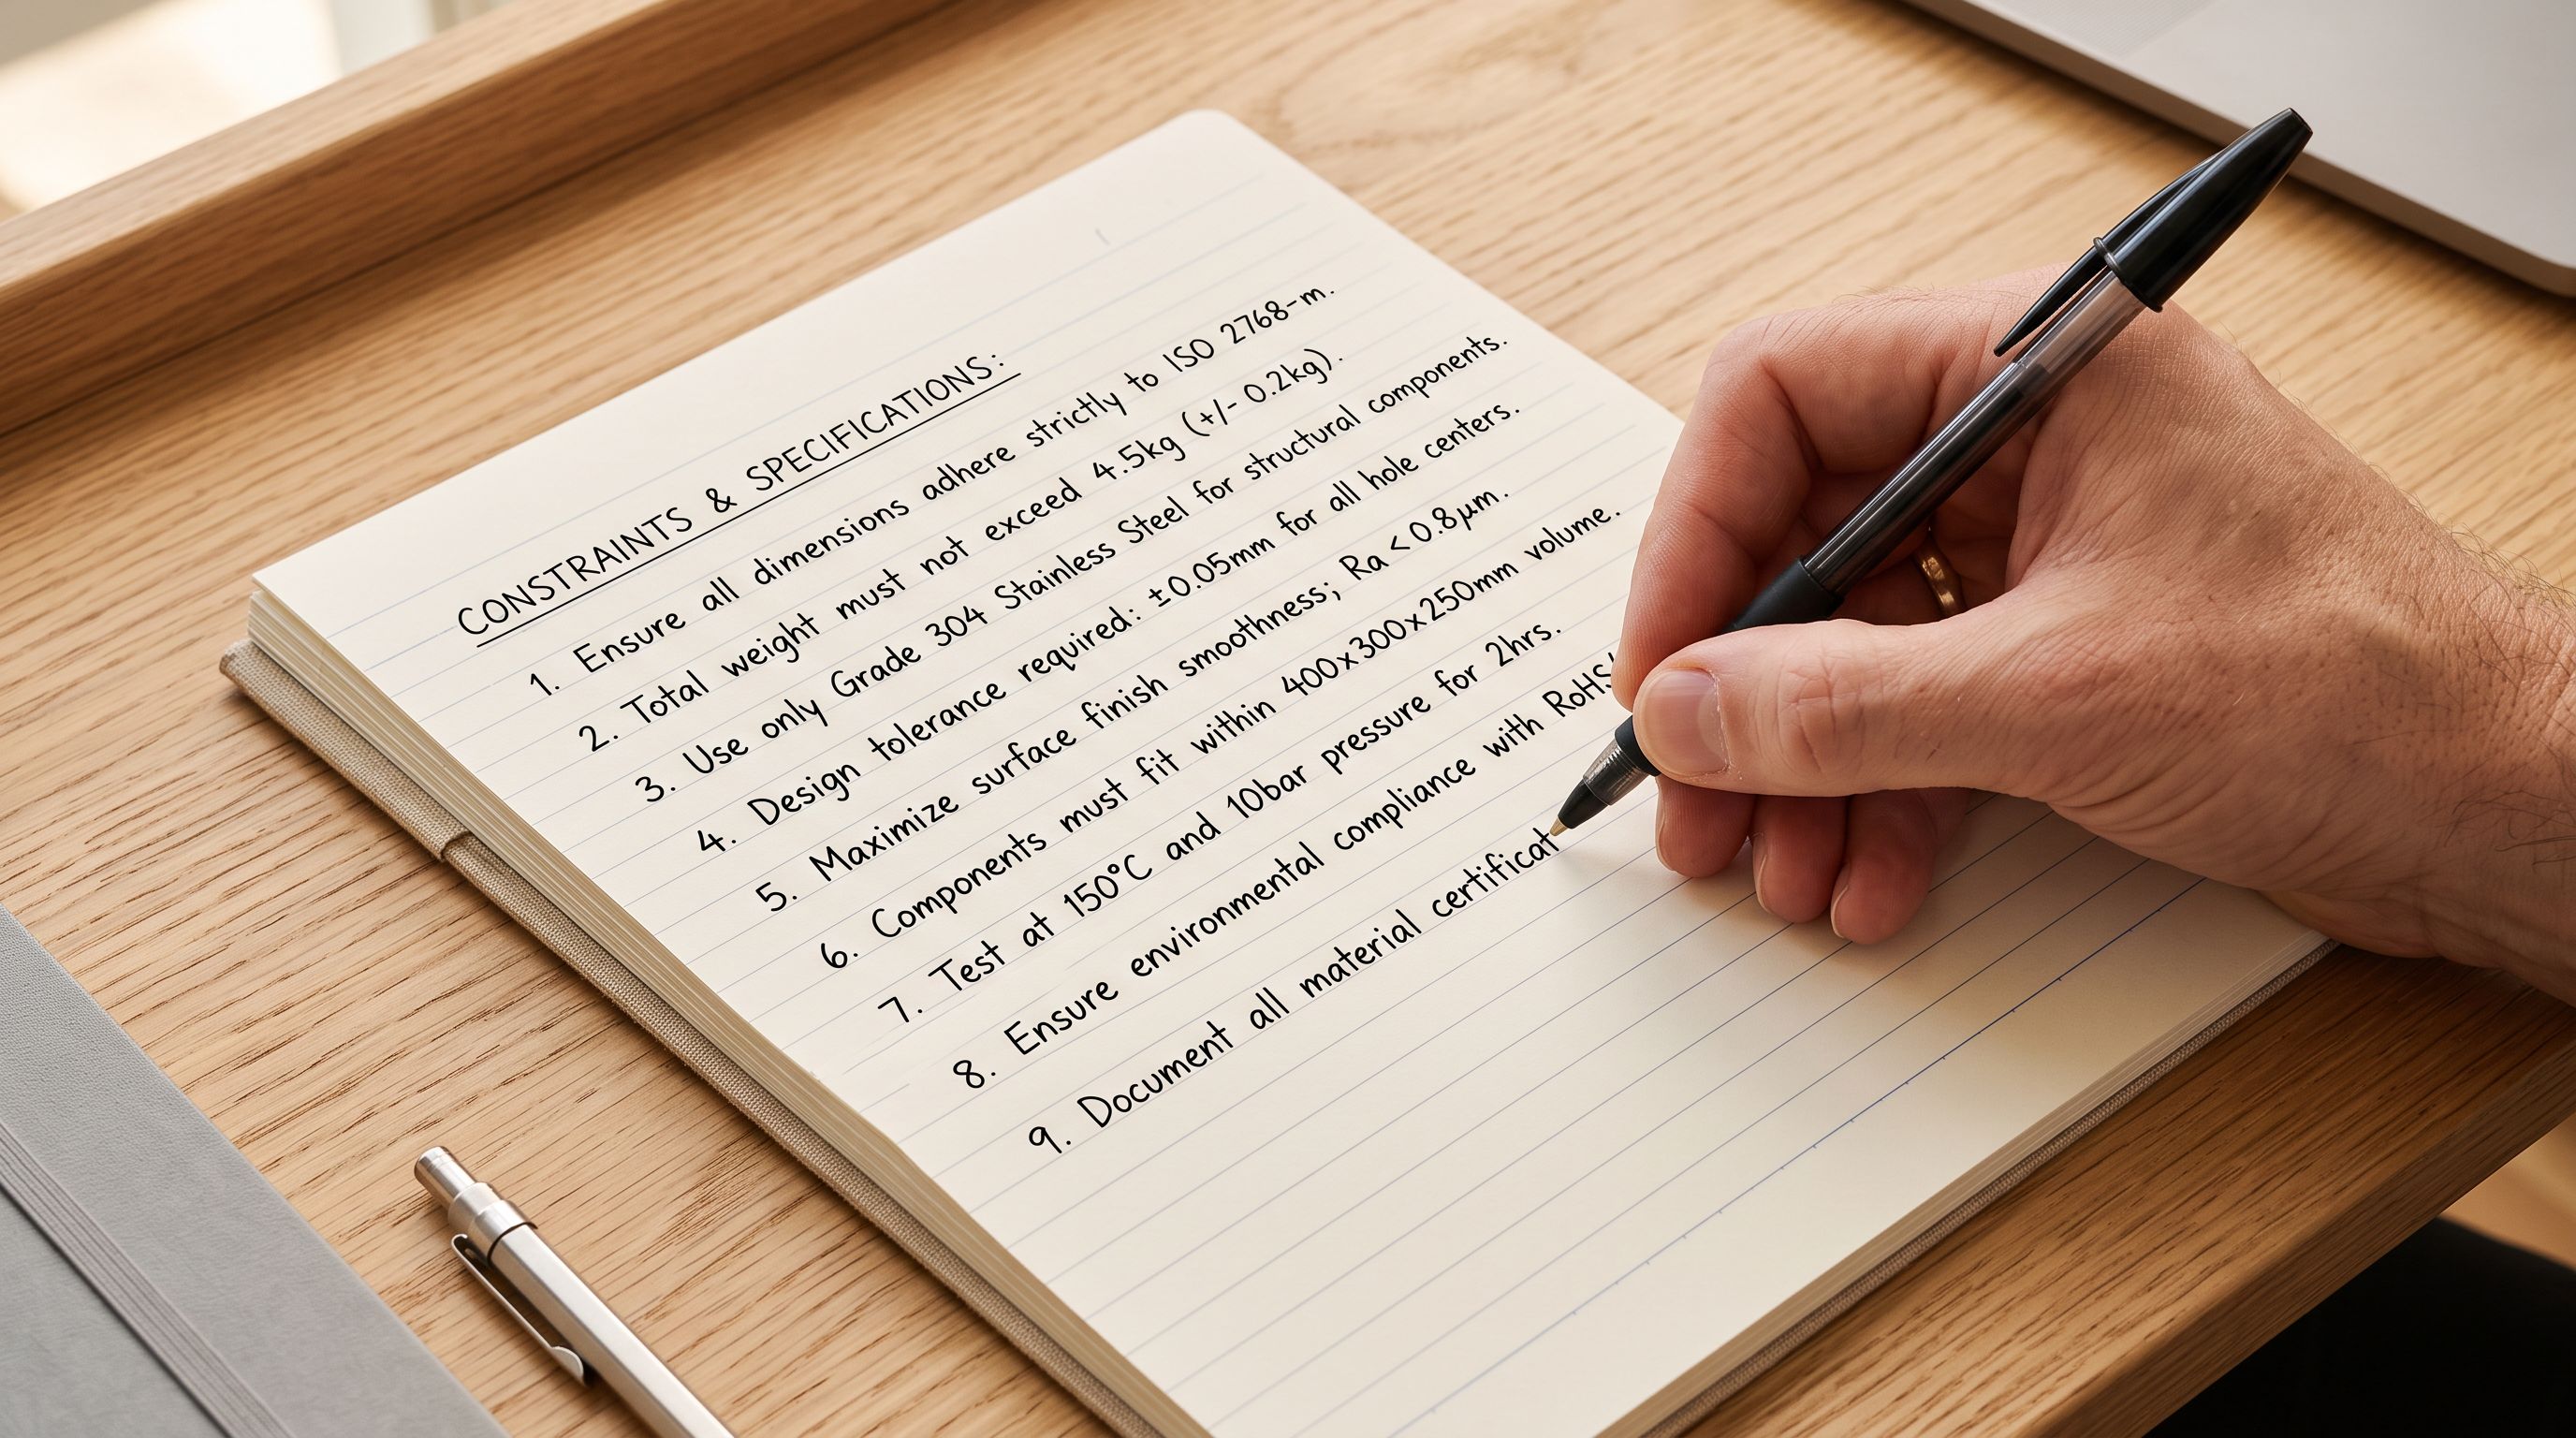 CONSTRAINTS & SPECIFICATIONS:
1. Ensure all dimensions adhere strictly to ISO 2768-m.
2. Total weight must not exceed 4.5kg (+/- 0.2kg).
3. Use only Grade 304 Stainless Steel for structural components.
4. Design tolerance required: ±0.05mm for all hole centers.
5. Maximize surface finish smoothness; Ra < 0.8μm.
6. Components must fit within 400x300x250mm volume.
7. Test at 150°C and 10bar pressure for 2hrs.
8. Ensure environmental compliance with RoHS
9. Document all material certificat